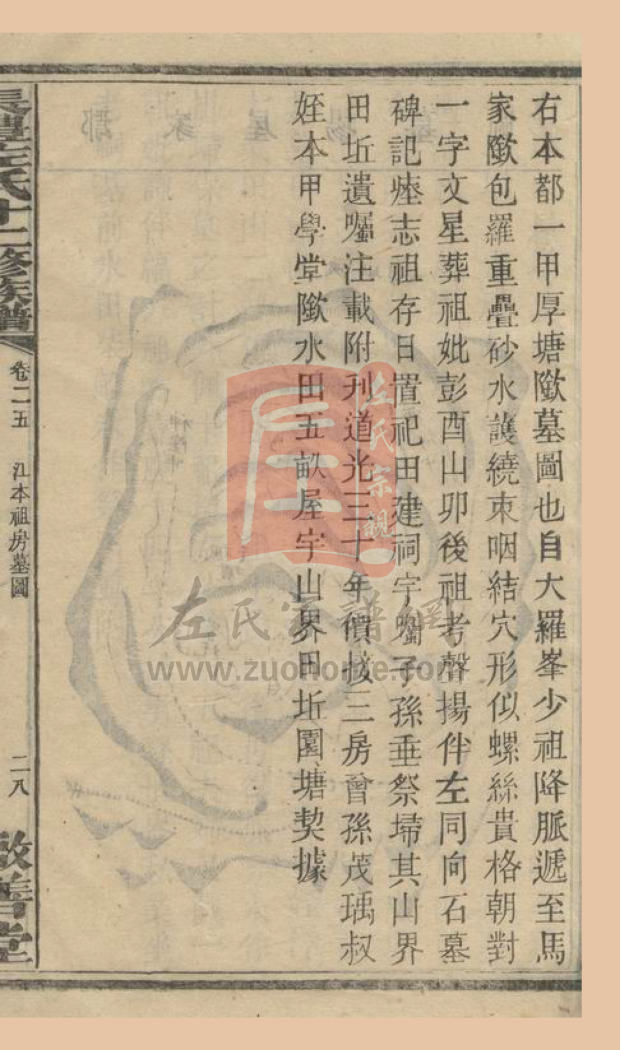 右本都一甲厚塘墩墓圖也自大羅峯少祖降脈遞至馬
家墩包羅重疊砂水護繞束咽結穴形似螺絲貴格朝對
一字文星葬祖妣彭酉山卯後祖考聲揚伴左同向石墓
碑記瘞志祖存日置祀田建祠宇囑子孫垂祭埽其山界
田坵遺囑注載附刋道光三十年價接三房曾孫茂瑀叔
姪本甲學堂墩水田五畝屋宇山界田坵園塘契據
長豐左氏十二修族譜 卷二五 江本祖房墓圖 二八 敦善堂
左氏宗親
左氏宗譜網
www.zuohome.com